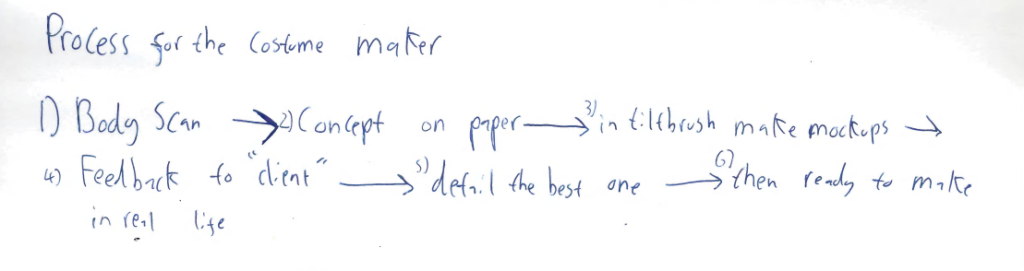 Process for the Costume maker
1) Body Scan → 2) Concept on paper → 3) in tiltbrush make mockups →
4) Feedback to "client" → 5) detail the best one → 6) then ready to make
in real life